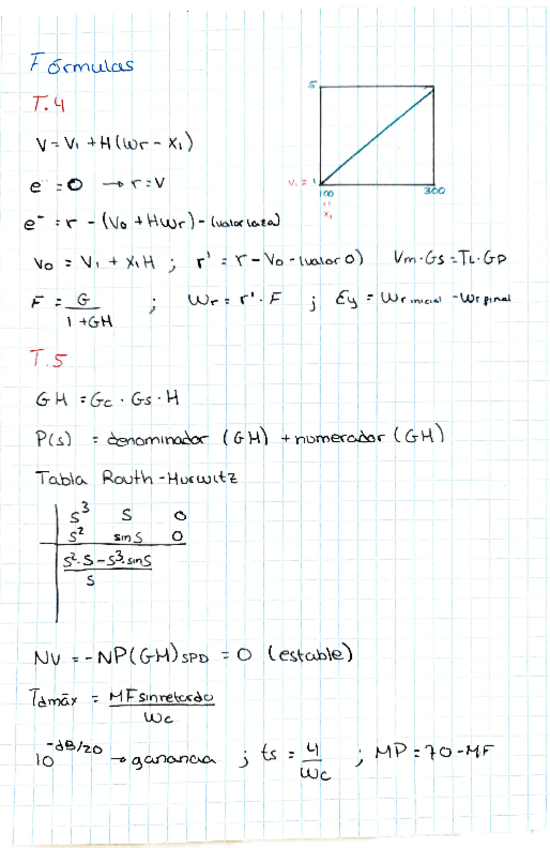 Fórmulas
T.4
V = V₁ + H(Wr - X₁)
e = 0 → r = V
e = r - (Vo + HWr) - (valor laza)
Vo = V₁ + X₁H ; r' = r - Vo - (valor 0) Vm·Gs = TL·GP
F = G / 1 + GH ; Wr = r'·F ; Ey = Wr inicial - Wr final
5
V₁ = 1
100 300
=
X₁
T.5
GH = Gc · Gs · H
P(s) = denominador (GH) + numerador (GH)
Tabla Routh-Hurwitz
S³ S 0
S² sin S 0
S²·S - S³·sin S
S
NU = -NP(GH) SPD = 0 (estable)
Tdmáx = MF sin retardo / Wc
10^-dB/20 → ganancia ; ts = 4 / Wc ; MP = 70 - MF